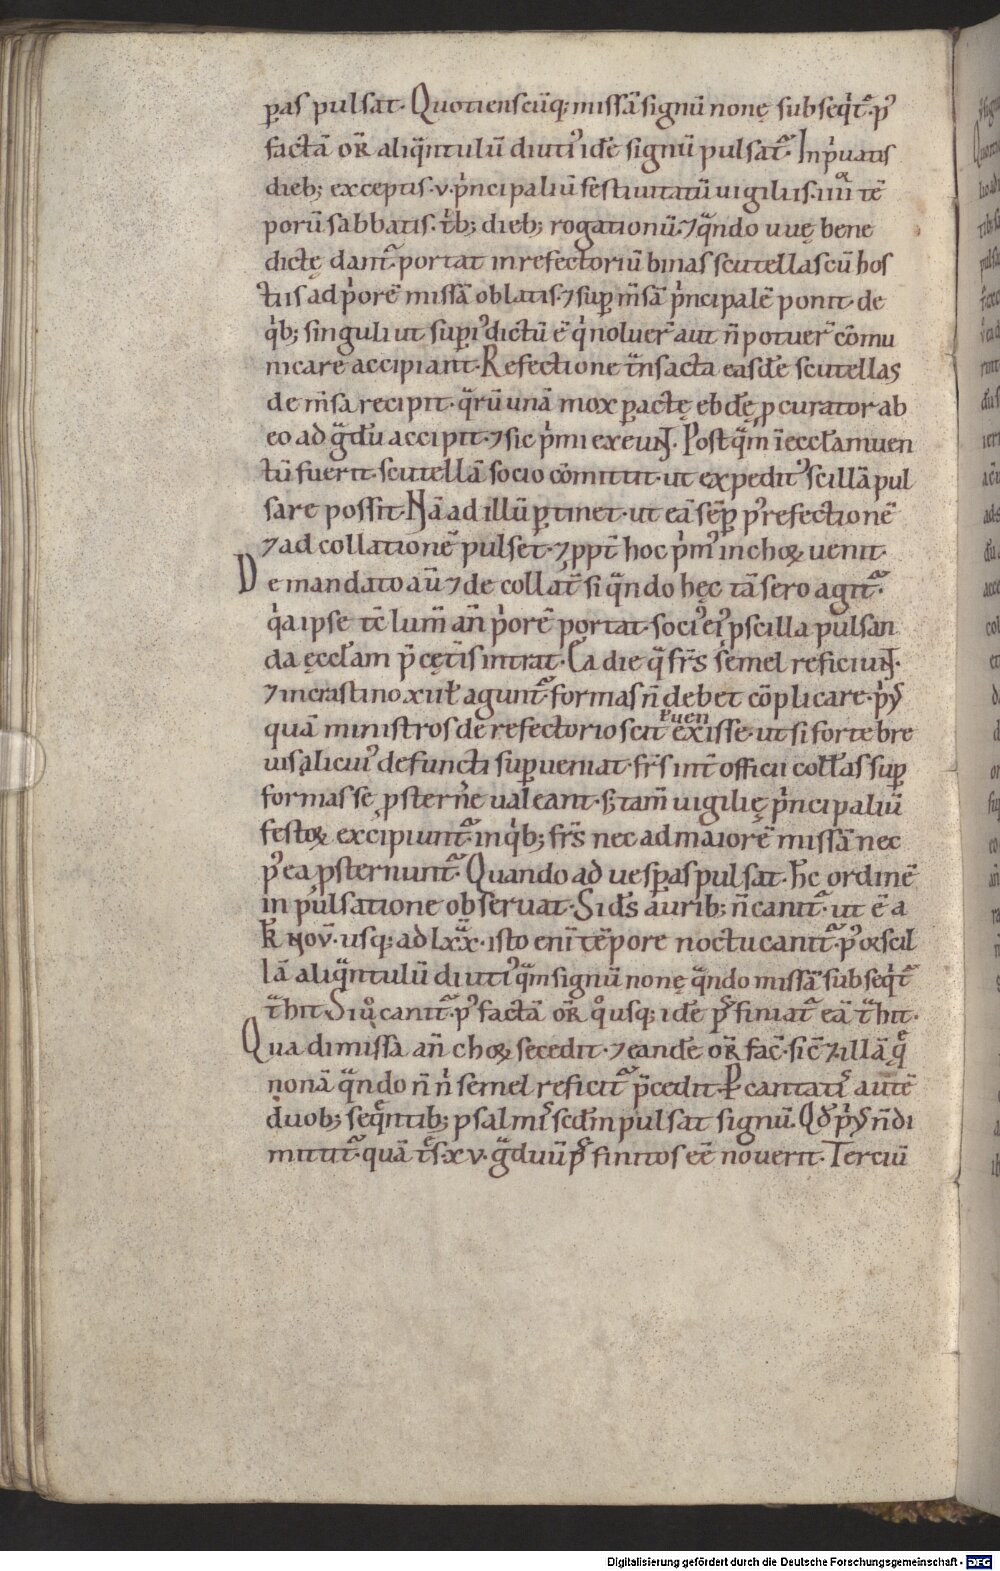 ꝑas pulsat. Quotienscūq; missā signū nonę subseq̇t᷑. pꝰ
factā or̄ aliq̈ntulū diutiꝰ idē signū pulsat᷑. In ṗuatis
dieb; exceptis .v. ṗncipaliū festiuitatū uigiliis. iiiiᵒʳ tē
porū sabbatis. t̍b; dieb; rogationū. ⁊ q̈ndo uuę bene
dictę dant᷑. portat in refectoriū binas scutellas cū hos
tiis ad p̍orē missā oblatis. ⁊ suꝑ m̄sā p̍ncipalē ponit. de
q̍b; singuli ut suꝑiꝰ dictū ē q̍ noluer̄ aut n̄ potuer̄ cōmu
nicare accipiant. Refectione t̄nsacta easdē scutellas
de m̄sa recipit. q̈rū unā mox ꝑactę ebdę ꝓcurator ab
eo ad g̈dū accipit. ⁊ sic p̍mi exeunt. Postq̈m ī eccłam uen
tū fuerit. scutellā socio cōmittit. ut expeditꝰ scillā pul
sare possit. Nā ad illū ꝑtinet. ut eā sēꝑ pꝰ refectionē
⁊ ad collationē pulset. ⁊ ꝓpt̄ hoc p̍mꝰ in choꝝ uenit.
De mandato aū ⁊ de collat̄ si q̈ndo hęc tā sero agit᷑.
q̍a ipse tē lum̄ an̄ p̍orē portat. sociꝰ eiꝰ ꝓ scilla pulsan
da ęccłam p̄ cęt̄is intrat. Ea die q̈ fr̄s semel reficiunt.
⁊ in crastino xii ł agunt᷑. formas n̄ debet cōplicare. p̍ꝰ
quā ministros de refectorio scit exisse. ł uen ut si forte bre
uis alicuiꝰ defuncti suꝑueniat. fr̄s int̄ officii collas suꝑ
formas se ꝓsterne̍ ualeant. s; tam̄ uigilię p̍ncipaliū
festoꝝ excipiunt᷑. in q̍b; fr̄s nec ad maiorē missā nec
pꝰ ea ꝓsternunt᷑. Quando ad uesꝑas pulsat. hē ordinē
in pulsatione obseruat. Si d̄s aurib; n̄ canit᷑. ut ē a
k̄ nov̄. usq; ad lxx̄. isto eni tēpore noctu canit᷑. pꝰ q̄ scil
lā aliq̈ntulū diutiꝰ q̈m signū nonę q̈ndo missā subseq̇t᷑
t̄hit. Si ů canit᷑. pꝰ factā or̄ q̊usq; idē p̄s finiat᷑ eā t̄hit.
Qua dimissa an̄ choꝝ secedit. ⁊ eandē or̄ fac̄. sic̄ ⁊ illā q̄
nonā q̈ndo n̄ n̍ semel reficit᷑ p̄cedit. P cantatis autē
duob; seq̄ntib; psalmis sed̄m pulsat signū. Qd̄ p̍ꝰ n̄ di
mittit᷑. quā t̄s xv. g̈duū p̄s finitos eē nouerit. Terciū
Digitalisierung gefördert durch die Deutsche Forschungsgemeinschaft - DFG